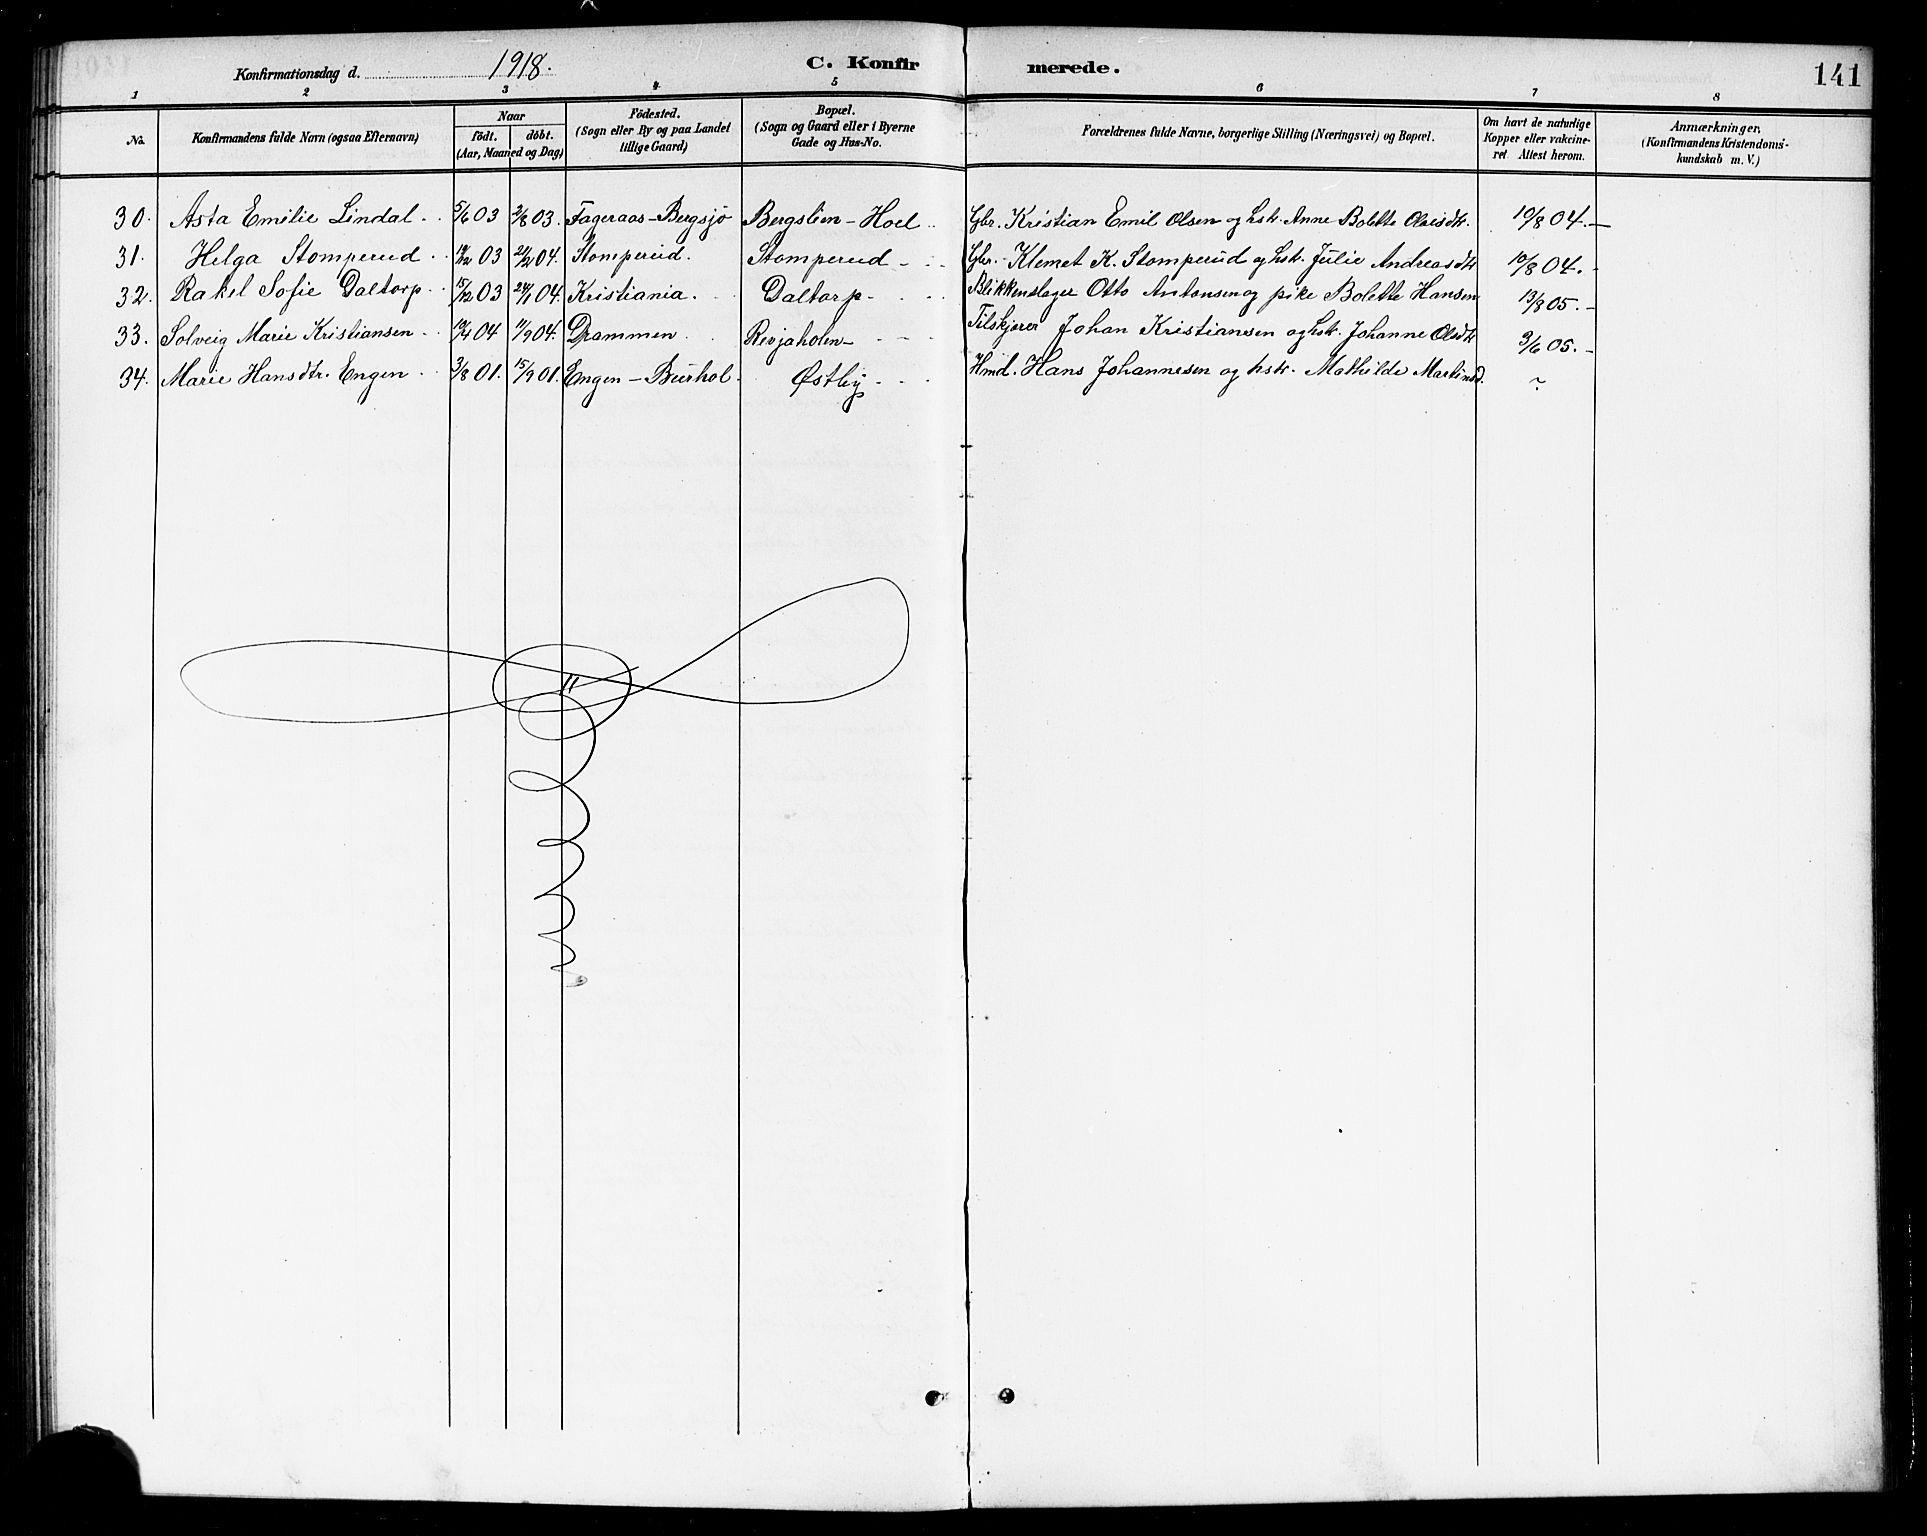 Konfirmationsdag d. 1918. C. Konfirmerede. 141
1 2 3 4 5 6 7 8
No. Konfirmandens fulde Navn (ogsaa Efternavn) Naar født. døbt. (Aar, Maaned og Dag) Födested. (Sogn eller By og paa Landet tillige Gaard) Bopæl. (Sogn og Gaard eller i Byerne Gade og Hus-No. Forældrenes fulde Navne, borgerlige Stilling (Næringsvei) og Bopæl. Om havt de naturlige Kopper eller vakcineret Attest herom. Anmærkninger, (Konfirmandens Kristendomskundskab m. V.)
30. Asta Emilie Lindal. 5/6 03 2/8 03. Fageraas-Bergsjö Bergslien-Hoel Gbr. Kristian Emil Olsen og hstr. Anne Bolette Olaisdtr. 10/8 04.
31. Helga Stomperud 03 04. Stomperud. Stomperud Gbr. Klemet K. Stomperud og hstr. Julie Andreasdtr 10/8 04.
32. Rakel Sofie Daltorp 15/12 03 24/1 04. Kristiania. Daltorp Blikkenslager Otto Antonsen og pike Bolette Hansen 13/8 05.
33. Solveig Marie Kristiansen 19/4 04 11/9 04. Drammen Revjaholen Tilskjærer Johan Kristiansen og hstr. Johanne Olsdtr 3/6 05.
34. Marie Hansdtr. Engen 3/8 01. 15/9 01. Engen-Burhol Østby Hmd. Hans Johannesen og hstr. Mathilde Martinsd. ~